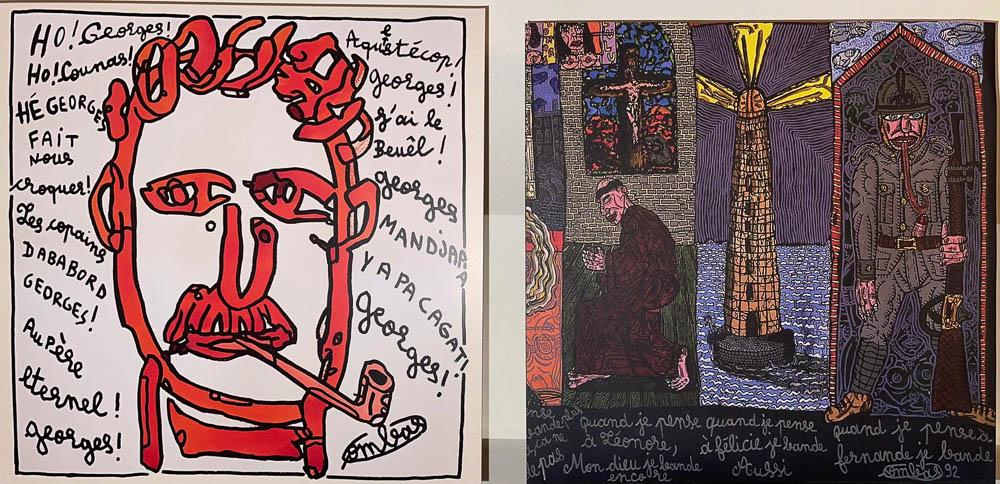 HO! Georges!
Ho! Lounas!
HÉ GEORGES
FAIT
nous
croquer!
Les copains
DABABORD
GEORGES!
Au Père
éternel!
georges!
Aqustécop!
e
georges!
j'ai le
Beuêl!
georges.
MANDJAPA
A
Y A PA CAGATI
georges!
Combas
quand je pense
à Léonore,
Mon dieu je bande
encore
quand je pense
à félicie je bande
Aussi
quand je pense à
fernande je bande
Combas 92